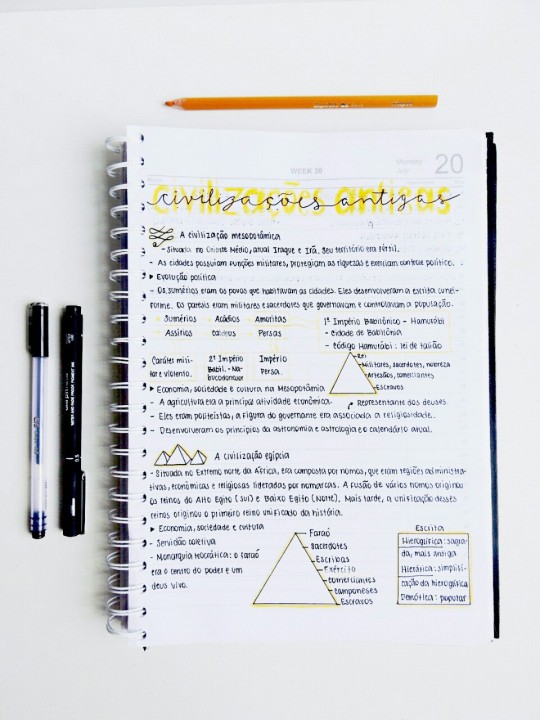 WEEK 30
Monday
July
20
civilizações antigas
A civilização mesopotâmica
- Situada no Oriente Médio, atual Iraque e Irã. Seu território era fértil.
- As cidades possuíam funções militares, protegiam as riquezas e exerciam controle político.
▸ Evolução política
- Os sumérios eram os povos que habitavam as cidades. Eles desenvolveram a escrita cunei-
forme. Os patesis eram militares e sacerdotes que governavam e controlavam a população.
Sumérios → Acádios → Amoritas
Assírios caldeus Persas
1º Império Babilônico - Hamurábi
- Cidade de Babilônia
- Código Hamurábi : lei de talião
Caráter mili-
tar e violento.
2º Império
Babil. - Na-
bucodonosor
Império
Persa.
Rei
Militares, sacerdotes, nobreza
Artesãos, comerciantes
Escravos
▸ Economia, sociedade e cultura na Mesopotâmia
- A agricultura era a principal atividade econômica.
Representante dos deuses
- Eles eram politeístas, a figura do governante era associada a religiosidade.
- Desenvolveram os princípios da astronomia e astrologia e o calendário anual.
A civilização egípcia
- Situada no Extremo norte da África, era composta por nomos, que eram regiões administra-
tivas, econômicas e religiosas lideradas por nomarcas. A fusão de vários nomos originou
os reinos do Alto Egito (sul) e Baixo Egito (Norte). Mais tarde, a unificação desses
reinos originou o primeiro reino unificado da história.
▸ Economia, sociedade e cultura
- Servidão coletiva
- Monarquia teocrática: o faraó
era o centro do poder e um
deus vivo.
Faraó
Sacerdotes
Escribas
Exército
comerciantes
camponeses
Escravos
Escrita
Hieroglífica: sagra-
da, mais antiga
Hierática: simplifi-
cação da hieroglífica
Demótica: popular